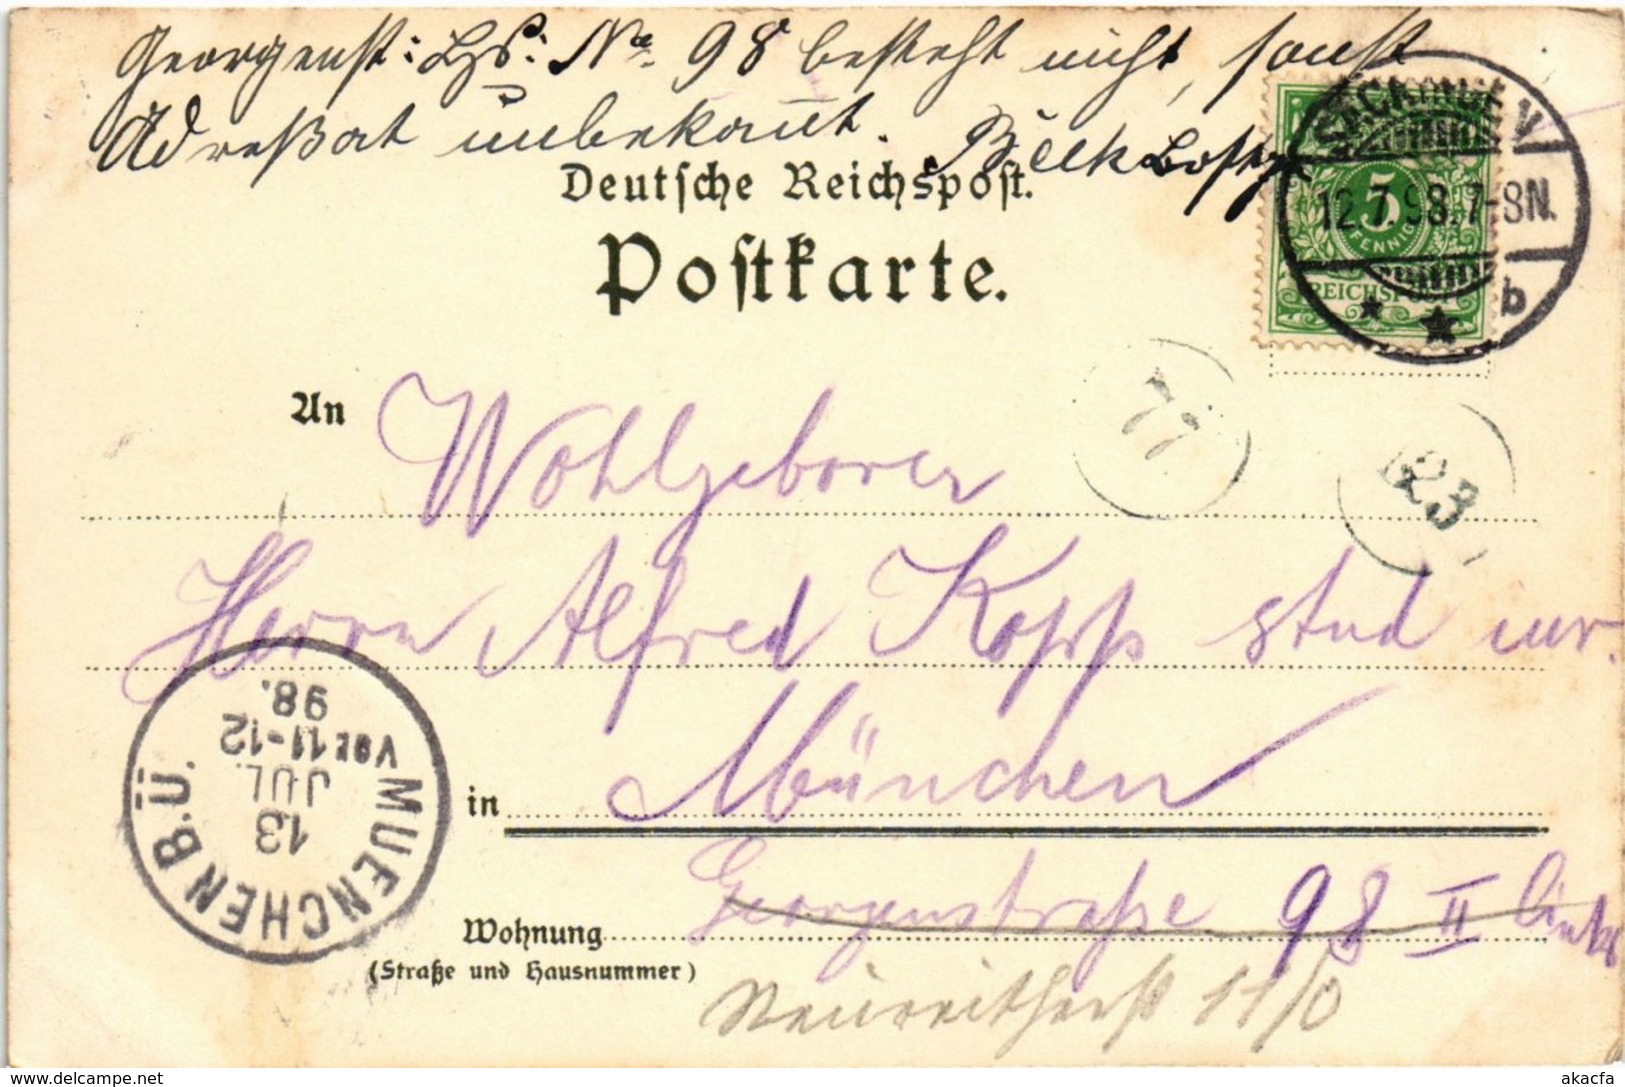 Georgenst: Hs: No. 98 besteht nicht, sonst
Adreßat unbekannt.
Deutsche Reichspost.
Postkarte.
5
PFENNIG
REICHSPOST
12.7.98.7-8N.
b
77
623
An Wohlgeboren
Herrn Alfred Kopp stud
in München
Georgenstraße 98 II links
Wohnung
(Straße und Hausnummer)
Neureitherst 11/0
MUENCHEN B.Ü.
13
JUL.
Vor 11-12
98.
www.delcampe.net
akacfa